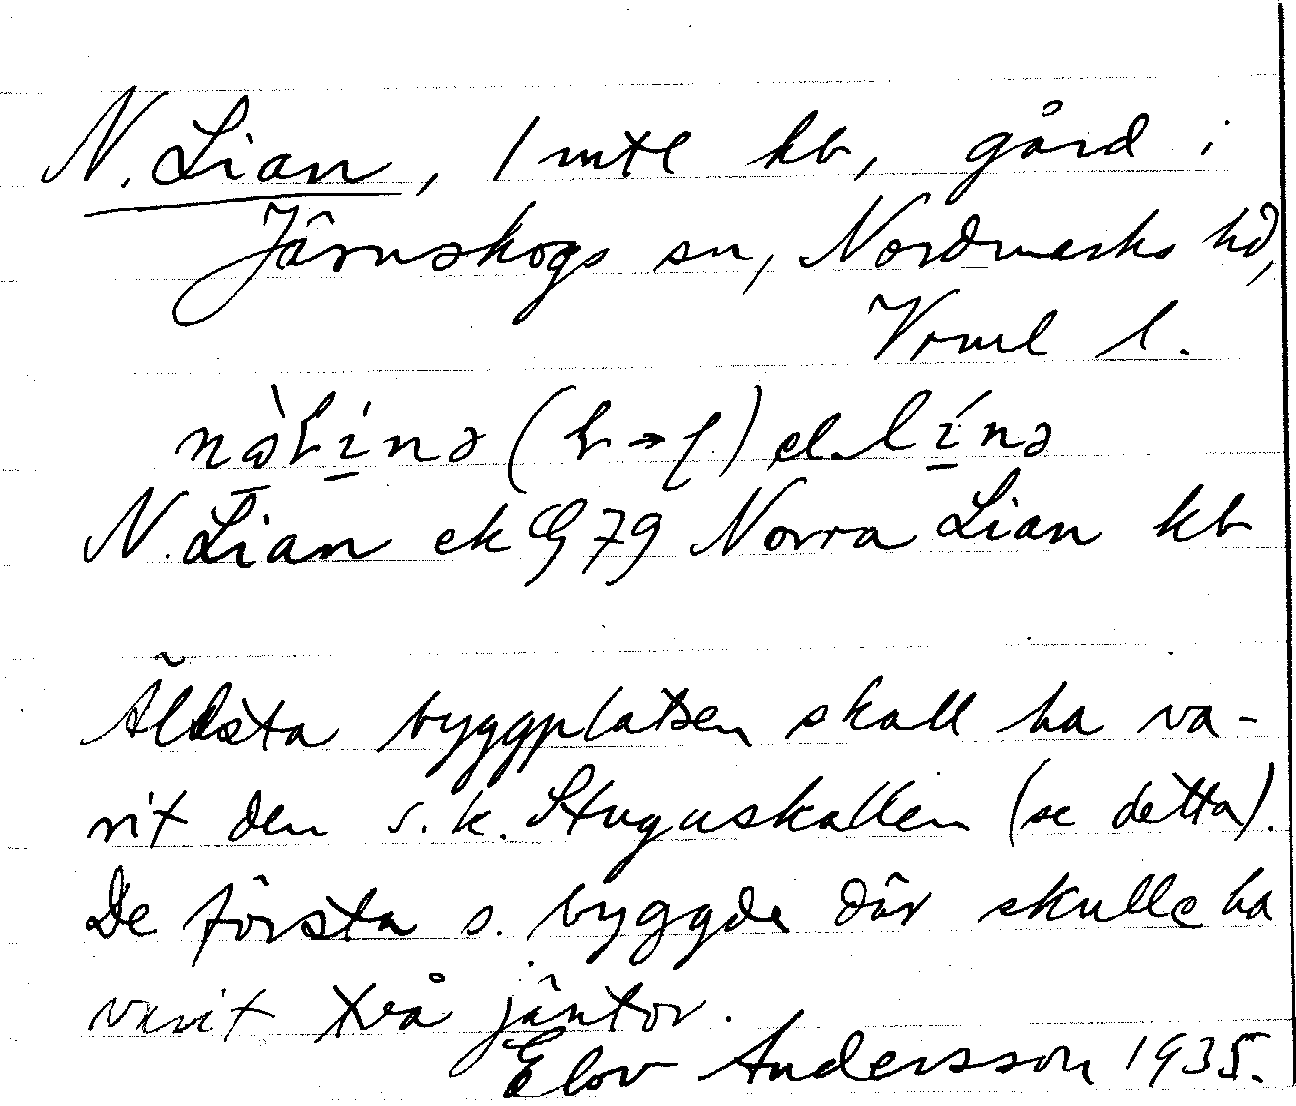 N. Lian, 1 mtl kb, gård i
Järnskogs sn, Nordmarks hd,
Vrml l.
el. línə
N. Lian ek G 79 Norra Lian kb
Äldsta byggplatsen skall ha va-
rit den s.k. Stuguskallen (se detta).
De första s. byggde där skulle ha
varit två jäntor.
Elov Andersson 1935.